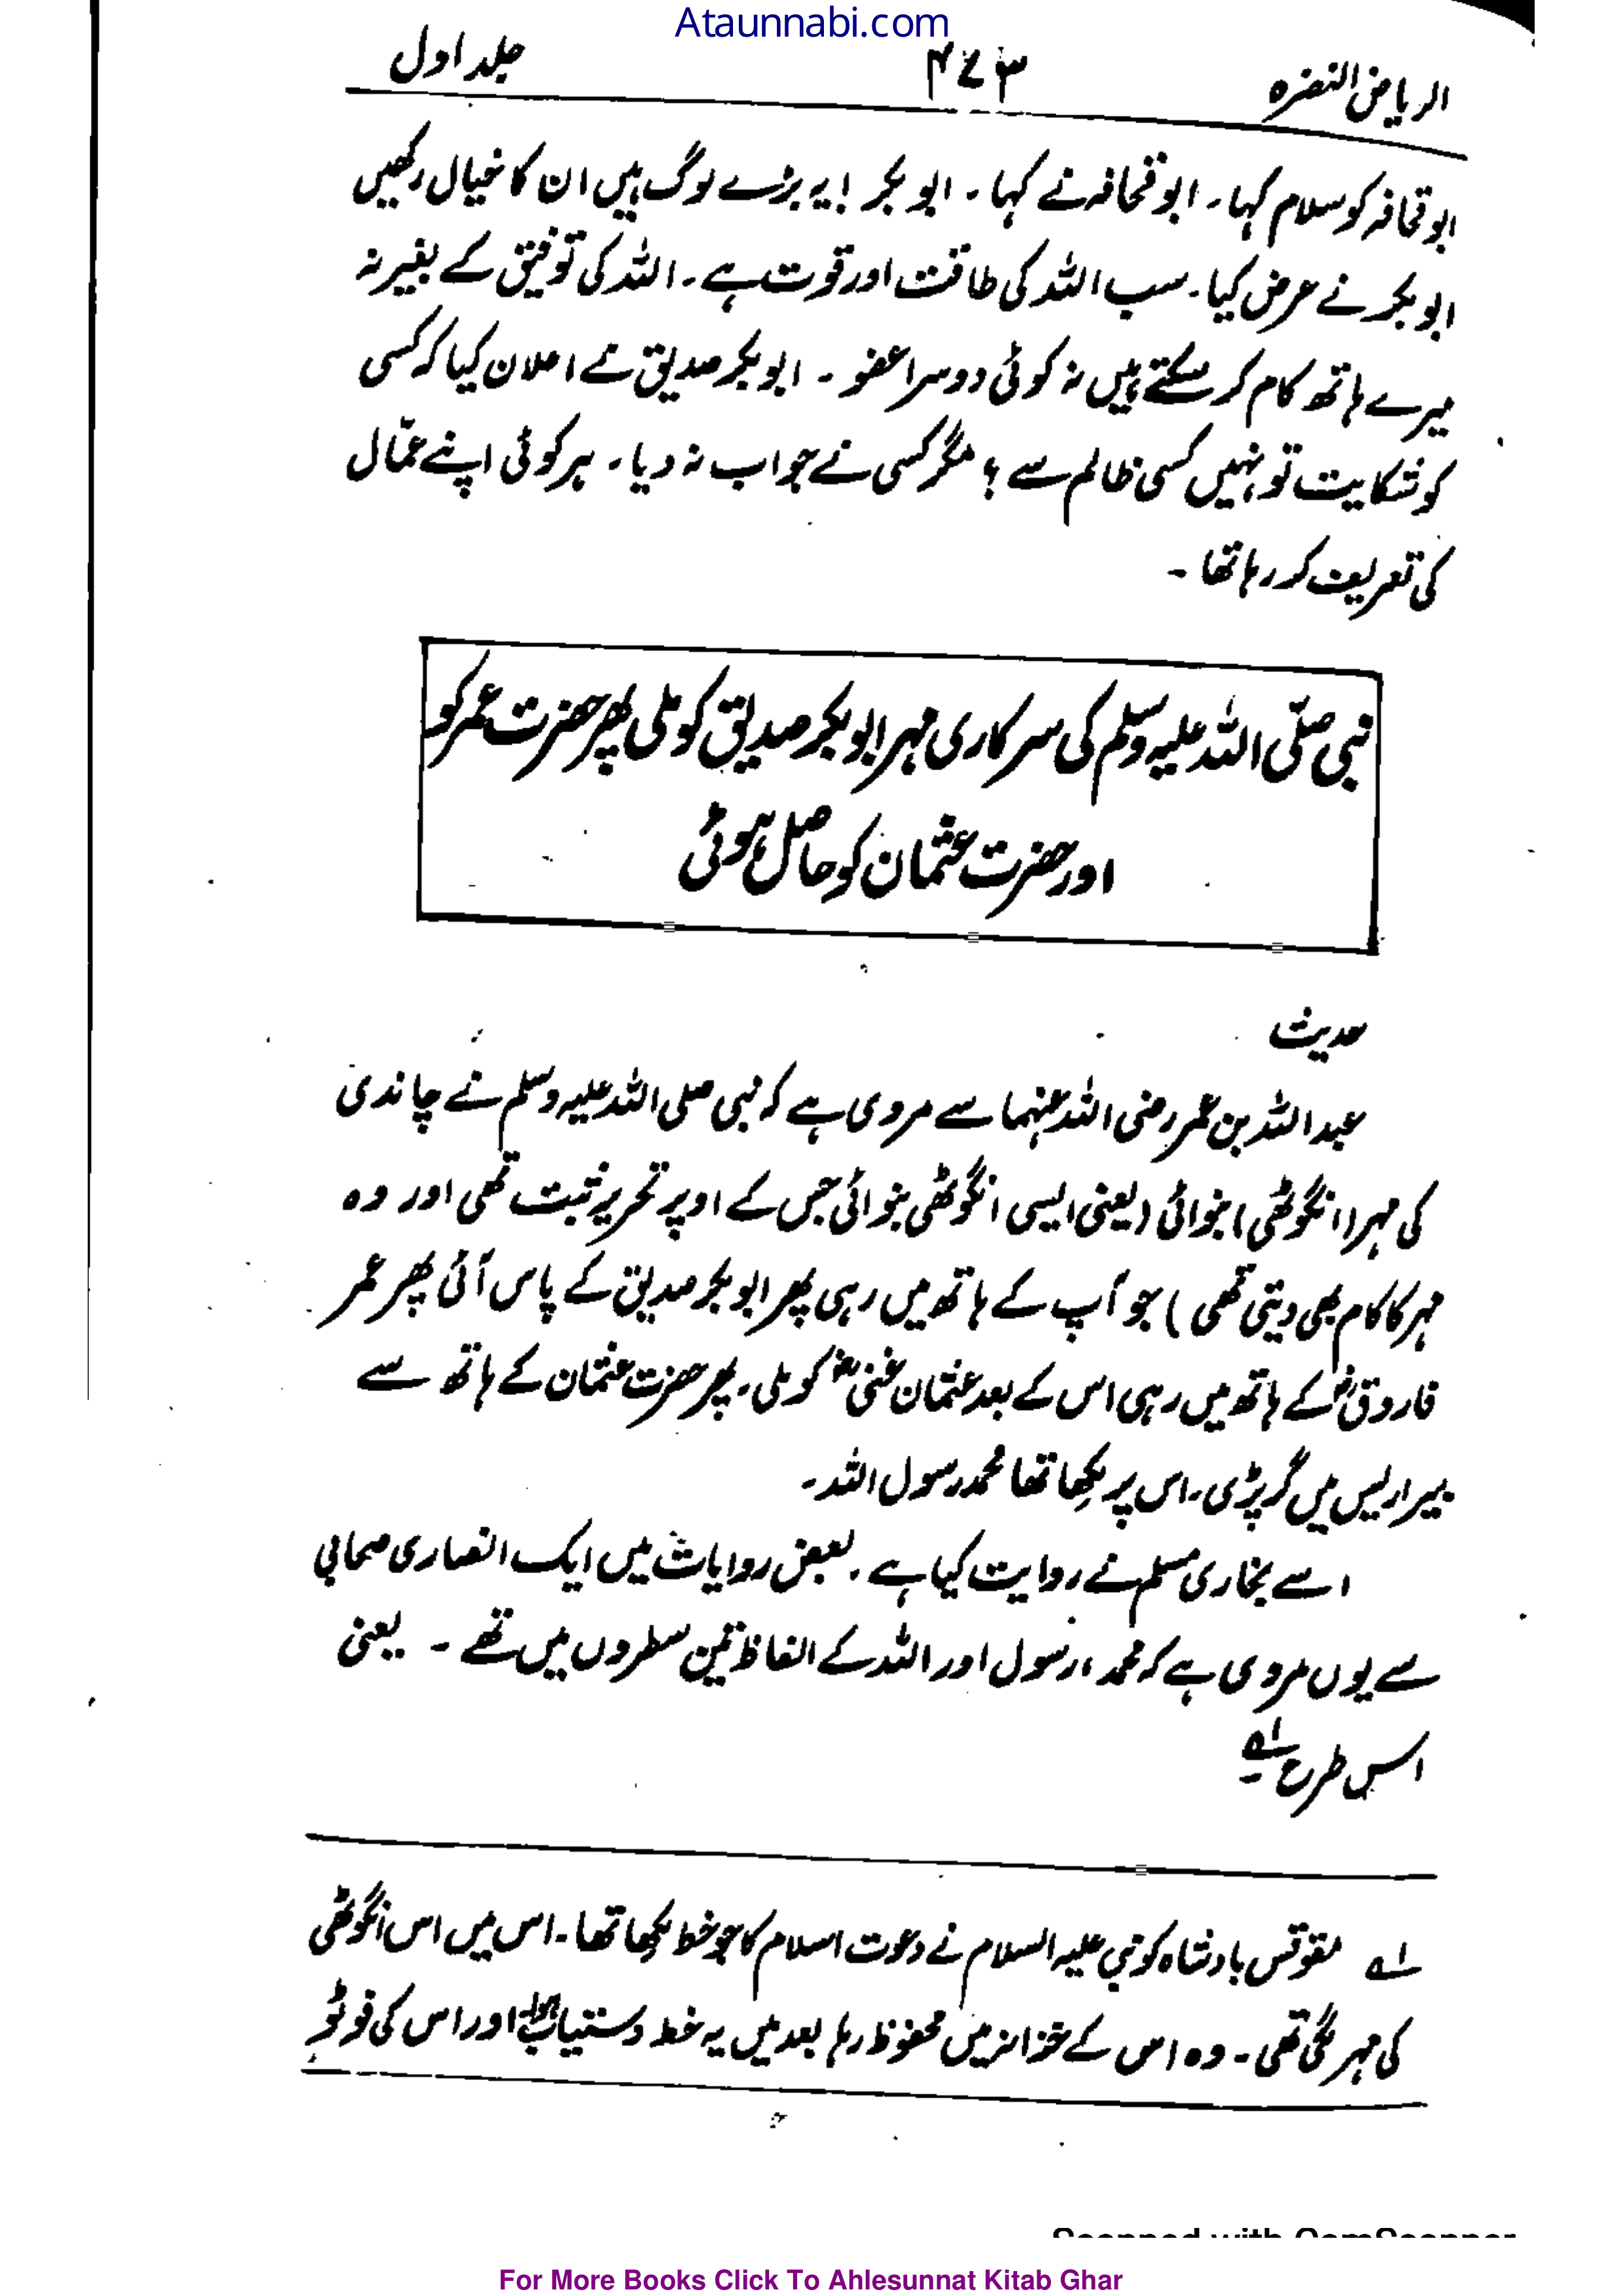 Ataunnabi.com
الریاض النضرہ ۴۷۳ جلد اول
ابو قحافہ کو سلام کہا۔ ابو قحافہ نے کہا۔ ابو بکر! یہ بڑے لوگ ہیں ان کا خیال رکھیں
ابو بکر نے عرض کیا۔ سب اللہ کی طاقت اور قوت ہے۔ اللہ کی توفیق کے بغیر نہ
میرے ہاتھ کام کر سکتے ہیں نہ کوئی دوسرا عضو ۔ ابو بکر صدیق نے اعلان کیا کہ کسی
کو شکایت تو نہیں کسی ظالم سے ؟ مگر کسی نے جواب نہ دیا۔ ہر کوئی اپنے عمّال
کی تعریف کر رہا تھا ۔
نبی صلّی اللہ علیہ وسلم کی سرکاری مہر ابو بکر صدیق کو ملی پھر حضرت عمر کو
اور حضرت عثمان کو حاصل ہوئی
حدیث
عبد اللہ بن عمر رضی اللہ عنہما سے مروی ہے کہ نبی صلی اللہ علیہ وسلم نے چاندی
کی مہر (انگوٹھی) بنوائی (یعنی ایسی انگوٹھی بنوائی جس کے اوپر تحریر ثبت تھی اور وہ
مہر کا کام بھی دیتی تھی ) جو آپ کے ہاتھ میں رہی پھر ابو بکر صدیق کے پاس آئی پھر عمر
فاروقؓ کے ہاتھ میں رہی اس کے بعد عثمان غنیؓ کو ملی۔ پھر حضرت عثمان کے ہاتھ سے
بیر اریس میں گر پڑی۔ اس پر لکھا تھا محمد رسول اللہ۔
اسے بخاری مسلم نے روایت کیا ہے ۔ بعض روایات میں ایک انصاری صحابی
سے یوں مروی ہے کہ محمد، رسول اور اللہ کے الفاظ تین سطروں میں تھے ۔ یعنی
اس طرح ۱؎
۱؎ مقوقس بادشاہ کو نبی علیہ السلام نے دعوت اسلام کا جو خط لکھا تھا۔ اس میں اس انگوٹھی
کی مہر لگی تھی ۔ وہ اس کے خزانہ میں محفوظ رہا بعد میں یہ خط دستیاب ہوا اور اس کی فوٹو
Scanned with CamScanner
For More Books Click To Ahlesunnat Kitab Ghar